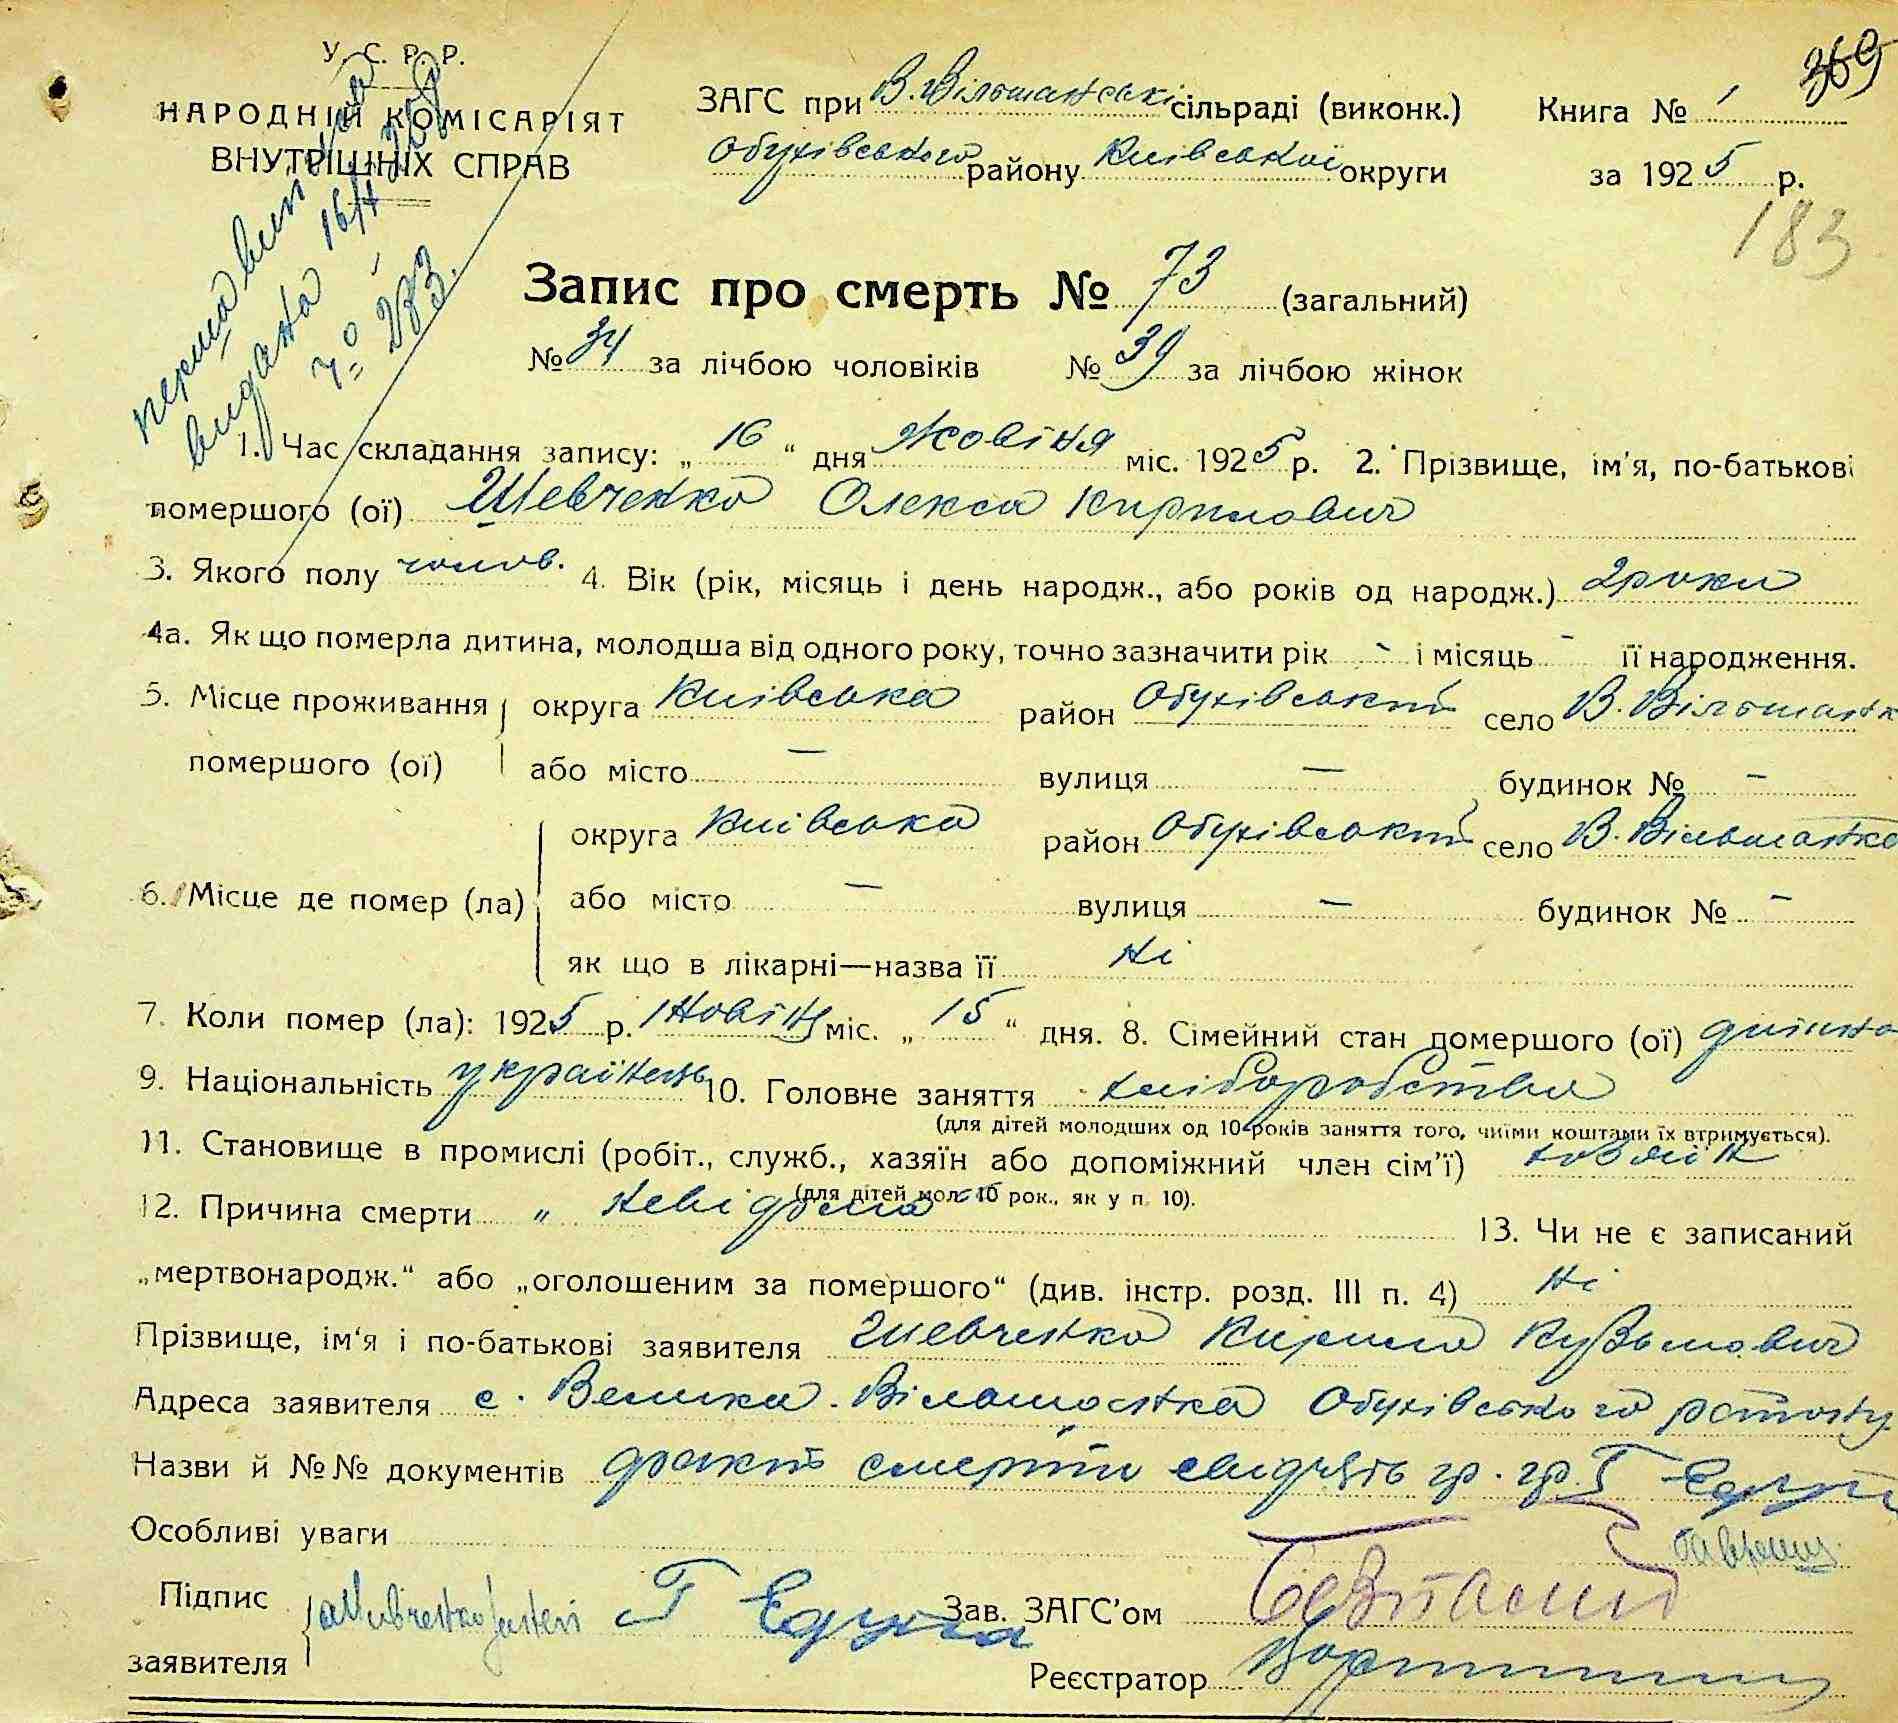 У. С. Р. Р.
НАРОДНІЙ КОМІСАРІЯТ
ВНУТРІШНІХ СПРАВ
ЗАГС при В. Вільшанські сільраді (виконк.)
Обухівського району Київської округи
Книга № 1
за 1925 р.
369
183
видана 16/
№ 283.
Запис про смерть № 73 (загальний)
№ 34 за лічбою чоловіків № 39 за лічбою жінок
1. Час складання запису: „ 16 “ дня Жовтня міс. 1925 р. 2. Прізвище, ім'я, по-батькові
помершого (ої) Шевченко Олекса Кирилович
3. Якого полу чолов. 4. Вік (рік, місяць і день народж., або років од народж.) 2 роки
4а. Як що померла дитина, молодша від одного року, точно зазначити рік - і місяць - її народження.
5. Місце проживання округа Київська район Обухівський село В. Вільшанка
помершого (ої) або місто — вулиця — будинок № -
6. Місце де помер (ла) округа Київська район Обухівський село В. Вільшанка
або місто — вулиця — будинок № -
як що в лікарні—назва її ні
7. Коли помер (ла): 1925 р. Жовтня міс. „ 15 “ дня. 8. Сімейний стан помершого (ої)
9. Національність українець 10. Головне заняття хліборобство
(для дітей молодших од 10 років заняття того, чиїми коштами їх втримується).
11. Становище в промислі (робіт., служб., хазяїн або допоміжний член сім'ї) хозяїн
(для дітей мол. 10 рок., як у п. 10).
12. Причина смерти „ невідома 13. Чи не є записаний
„мертвонародж.“ або „оголошеним за помершого“ (див. інстр. розд. III п. 4) ні
Прізвище, ім'я і по-батькові заявителя Шевченко Кирило Кузьмович
Адреса заявителя с. Велика Вільшанка Обухівського району
Назви й №№ документів факт смерти свидчять гр. гр. Г
Особливі уваги
Підпис заявителя Г
Зав. ЗАГС'ом
Реєстратор